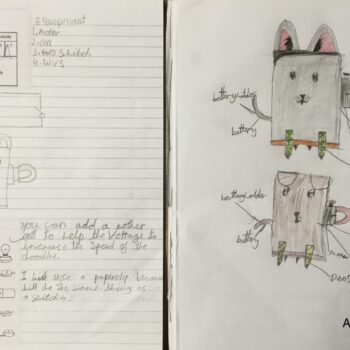 Equipmant
1.Moter
2.cell
3. Switch
4.Wirs
You can add a nother
cell to help the Voltage to
increase the speed of the
doodle.
I will use a paperclip because
will do the same thing as
a switch.
batteryholder
battery
batteryholder
battery
Pens
A